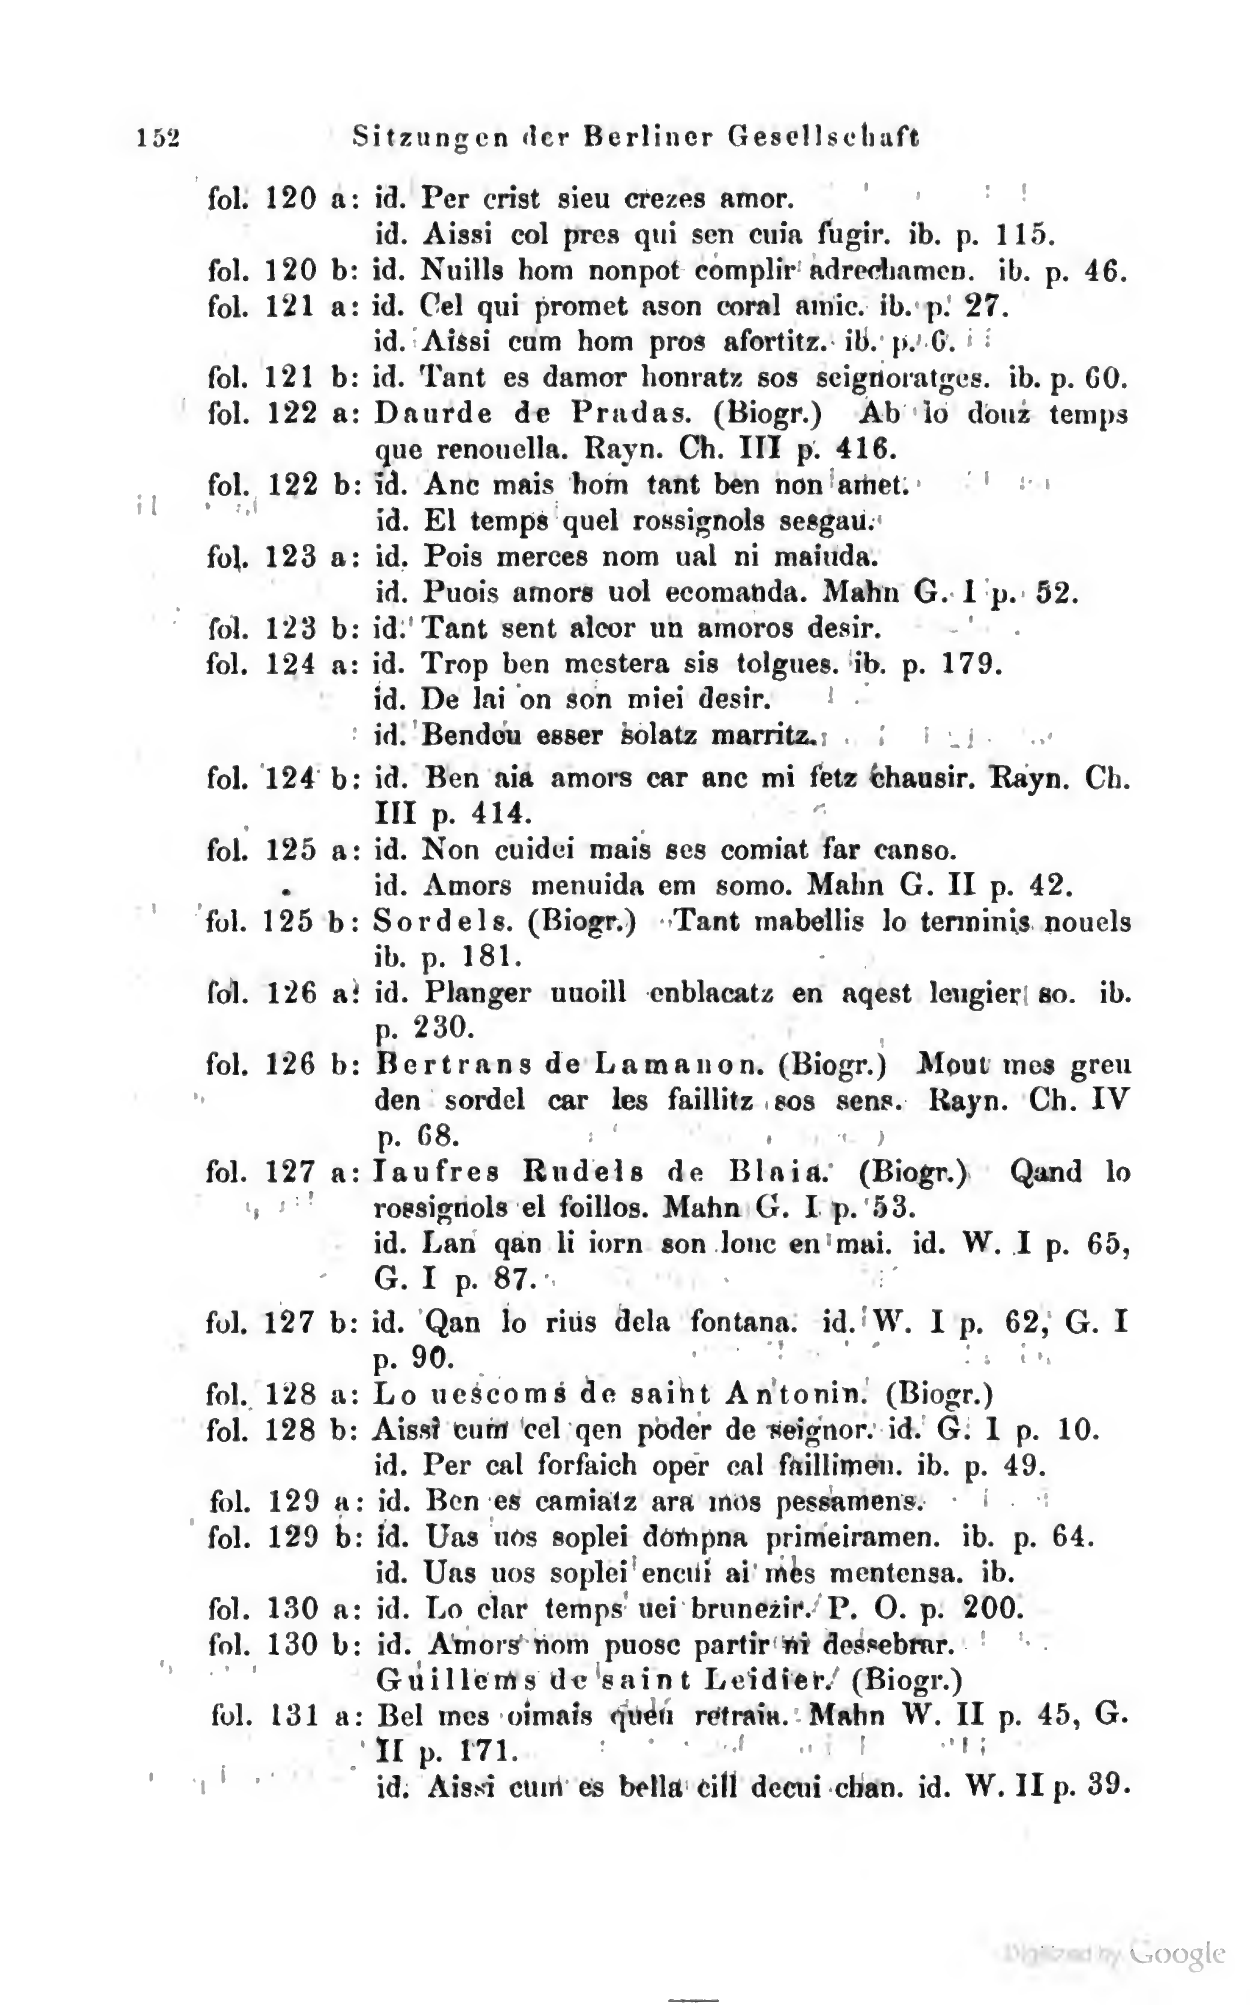 152 Sitzungen der Berliner Gesellschaft
fol. 120 a: id. Per crist sieu crezes amor.
id. Aissi col pres qui sen cuia fugir. ib. p. 115.
fol. 120 b: id. Nuills hom nonpot complir adrechamen. ib. p. 46.
fol. 121 a: id. Cel qui promet ason coral amic. ib. p. 27.
id. Aissi cum hom pros afortitz. ib. p. 6.
fol. 121 b: id. Tant es damor honratz sos seignoratges. ib. p. 60.
fol. 122 a: Daurde de Pradas. (Biogr.) Ab lo douz temps
que renouella. Rayn. Ch. III p. 416.
fol. 122 b: id. Anc mais hom tant ben non amet.
id. El temps quel rossignols sesgau.
fol. 123 a: id. Pois merces nom ual ni maiuda.
id. Puois amors uol ecomanda. Mahn G. I p. 52.
fol. 123 b: id. Tant sent alcor un amoros desir.
fol. 124 a: id. Trop ben mestera sis tolgues. ib. p. 179.
id. De lai on son miei desir.
id. Bendou esser solatz marritz.
fol. 124 b: id. Ben aia amors car anc mi fetz chausir. Rayn. Ch.
III p. 414.
fol. 125 a: id. Non cuidei mais ses comiat far canso.
id. Amors menuida em somo. Mahn G. II p. 42.
fol. 125 b: Sordels. (Biogr.) Tant mabellis lo terminis nouels
ib. p. 181.
fol. 126 a: id. Planger uuoill enblacatz en aqest leugier so. ib.
p. 230.
fol. 126 b: Bertrans de Lamanon. (Biogr.) Mout mes greu
den sordel car les faillitz sos sens. Rayn. Ch. IV
p. 68.
fol. 127 a: Iaufres Rudels de Blaia. (Biogr.) Qand lo
rossignols el foillos. Mahn G. I p. 53.
id. Lan qan li iorn son lonc en mai. id. W. I p. 65,
G. I p. 87.
fol. 127 b: id. Qan lo rius dela fontana. id. W. I p. 62, G. I
p. 90.
fol. 128 a: Lo uescoms de saint Antonin. (Biogr.)
fol. 128 b: Aissi cum cel qen poder de seignor. id. G. I p. 10.
id. Per cal forfaich oper cal faillimen. ib. p. 49.
fol. 129 a: id. Ben es camiatz ara mos pessamens.
fol. 129 b: id. Uas uos soplei dompna primeiramen. ib. p. 64.
id. Uas uos soplei encui ai mes mentensa. ib.
fol. 130 a: id. Lo clar temps uei brunezir. P. O. p. 200.
fol. 130 b: id. Amors nom puosc partir ni dessebrar.
Guillems de saint Leidier. (Biogr.)
fol. 131 a: Bel mes oimais queu retraia. Mahn W. II p. 45, G.
II p. 171.
id. Aissi cum es bella cill decui chan. id. W. II p. 39.
Digitized by Google